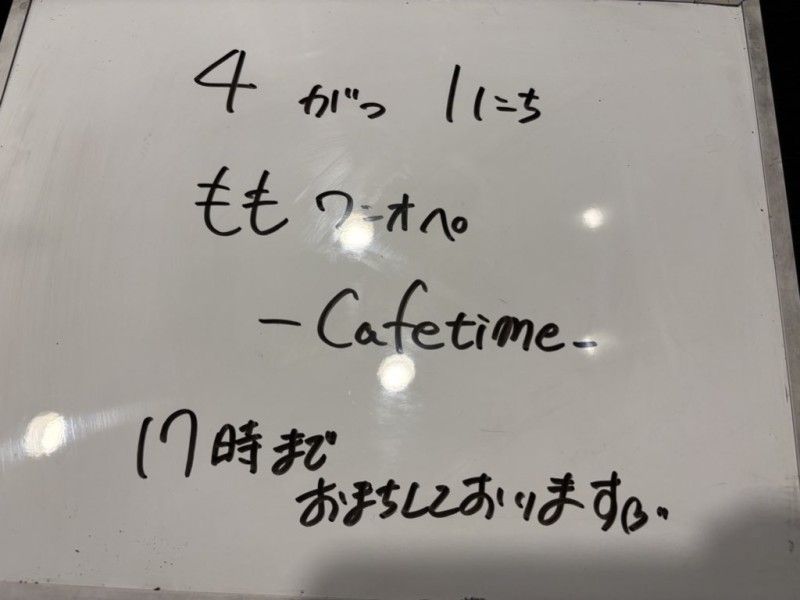 4がつ 11にち
ももワンオペ
-Cafetime-
17時まで
おまちしております